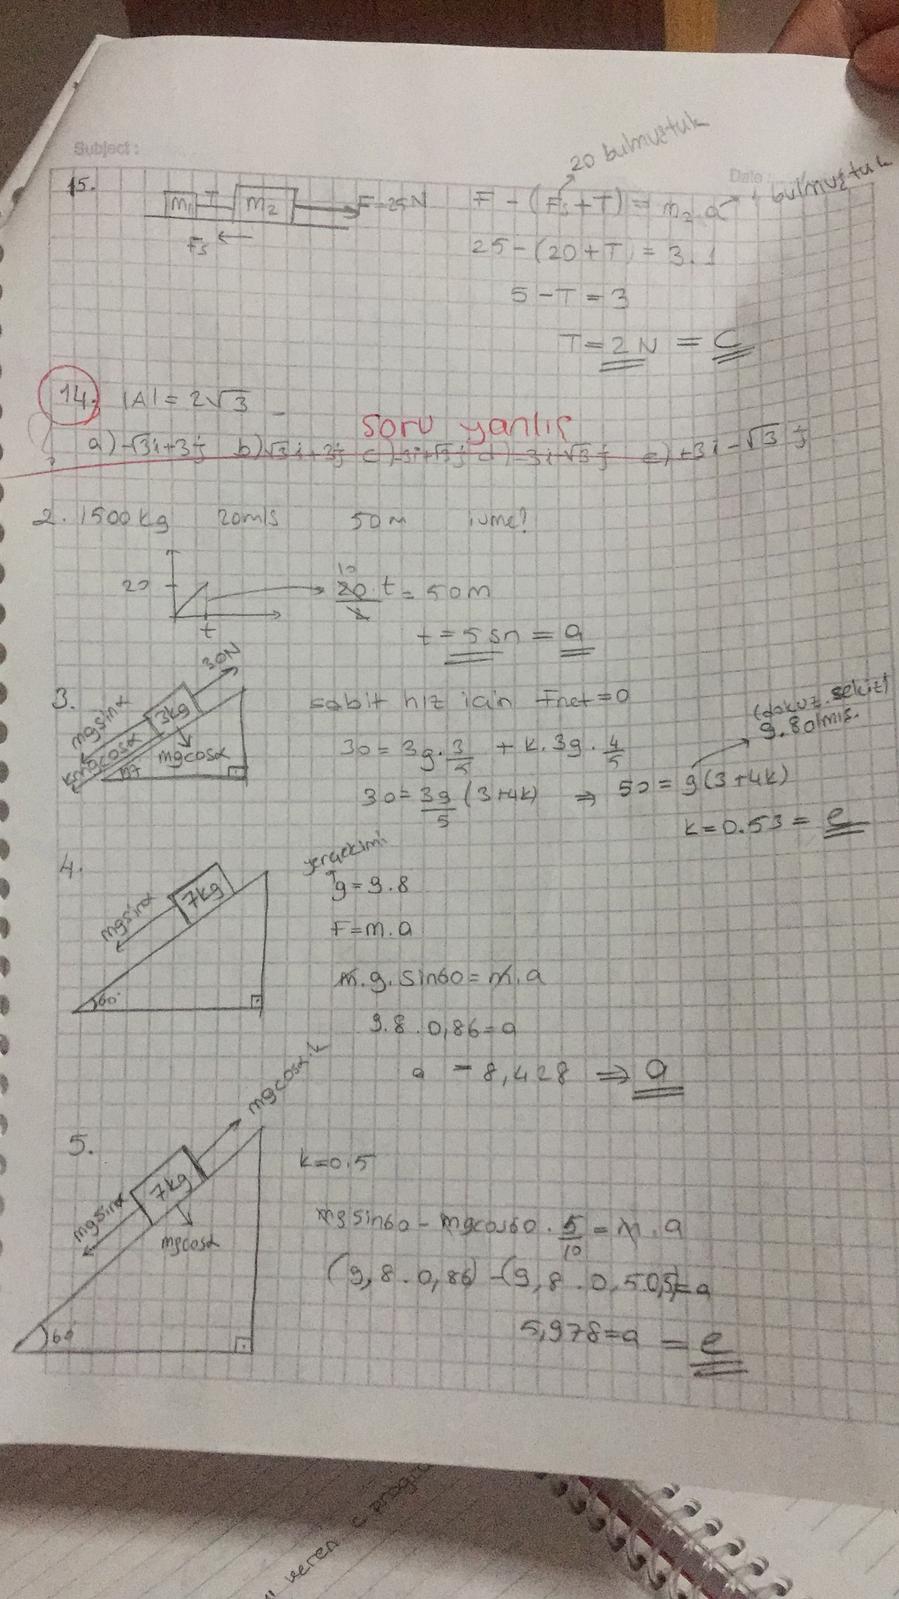 Subject :
Date :
20 bulmuştuk
1 bulmuştuk
15.
m₁ T m₂ F=25N
Fs
F - (Fs+T) = m₂.a
25-(20+T) = 3.1
5-T=3
T=2N = C
14. |A|=2√3
soru yanlış
a)-√3i+3j b)√3i+3j c)-3i+√3j d)-3i-√3j e)+3i-√3j
2. 1500kg 20m/s 50m ivme?
20
t
20.t/2 = 50m
10
t=5sn = a
3.
30N
3kg
mgsinα
kmgcosα
mgcosα
37
sabit hız için Fnet=0
30=3g.3/5 + k.3g.4/5
30=3g/5 (3+4k) ⇒ 50=g(3+4k)
(dokuz.sekiz)
9.8 olmış.
k=0.53 = e
4.
7kg
mgsinα
60°
yerçekimi
g=9.8
F=m.a
m.g.sin60=m.a
9.8.0,86=a
a=8,428 ⇒ a
5.
mgcosα.k
7kg
mgsinα
mgcosα
60
k=0.5
mgsin60-mgcos60.5/10=m.a
(9,8.0,86)-(9,8.0,5.0,5)=a
5,978=a = e
veren c